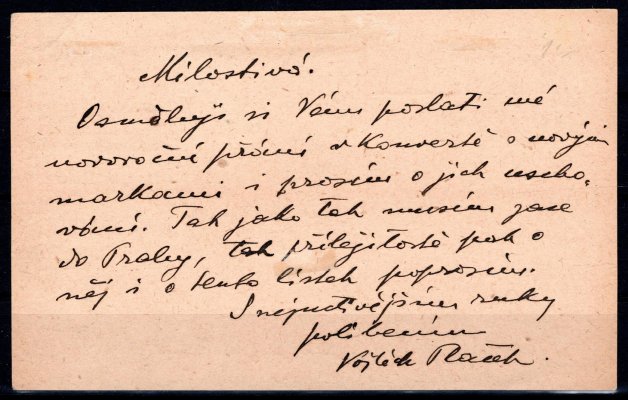 Milostivá.
Osměluji si Vám poslati mé
novoroční přání v Konvertě s novými
markami i prosím o jich uscho-
vání. Tak jako tak musím zase
do Prahy, tak příležitostě pak o
něj i o tento lístek poprosím.
S nejuctivějším ruky
políbením
Vojtěch